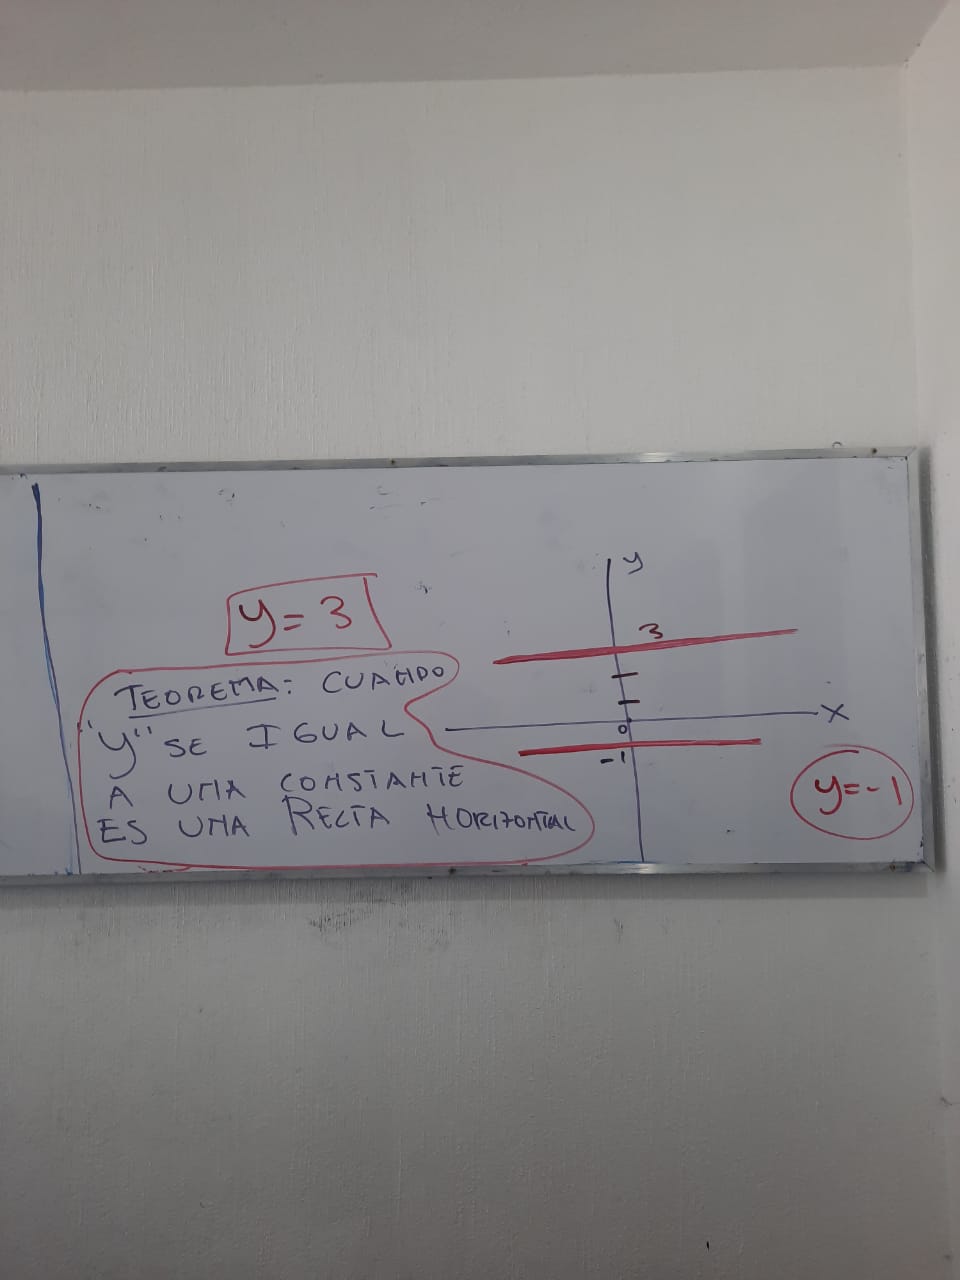 y = 3
TEOREMA: CUANDO
"y" SE IGUAL
A UNA CONSTANTE
ES UNA RECTA HORIZONTAL
y
3
x
0
-1
y=-1